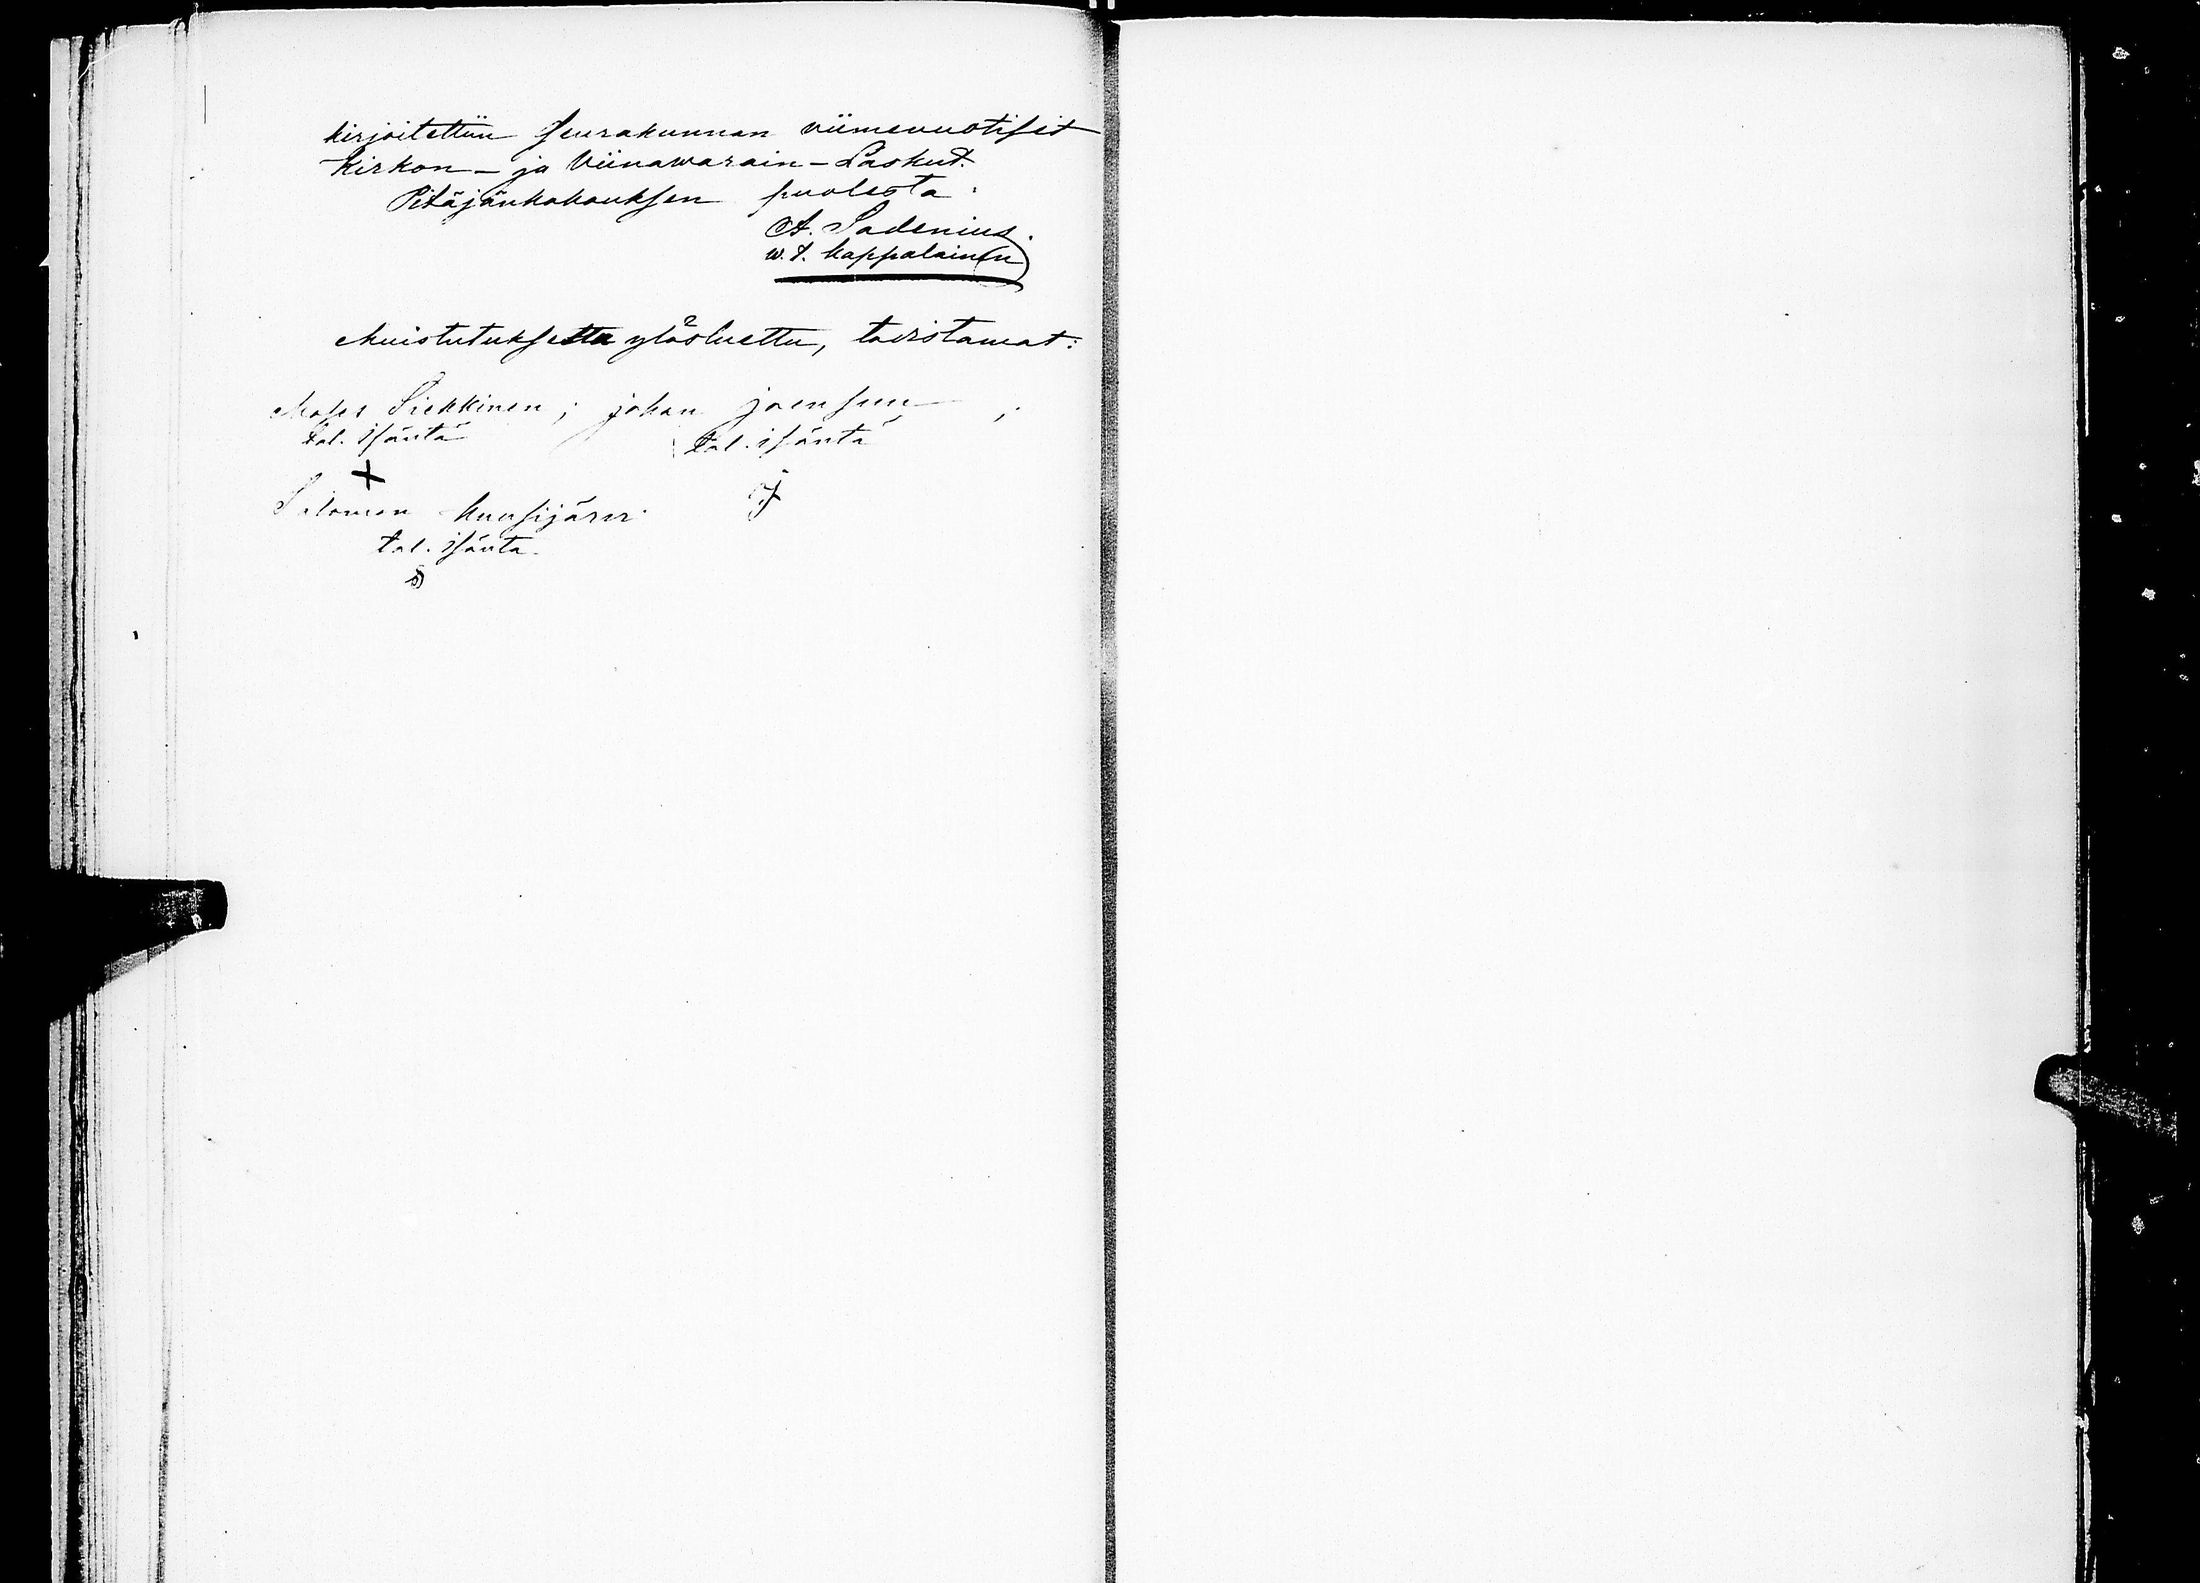 kirjoitettiin seurakunnan viimevuotiset
Kirkon- ja Viinawarain-Laskut.
Pitäjänkokouksen puolesta:
A. Sadenius.
w. t. kappalainen
Muistutuksetta ylösluettu, todistamat:
Moses Siekkinen; johan joensuu;
tal. isäntä tal. isäntä
Salomon Kuusijärvi
tal. isäntä